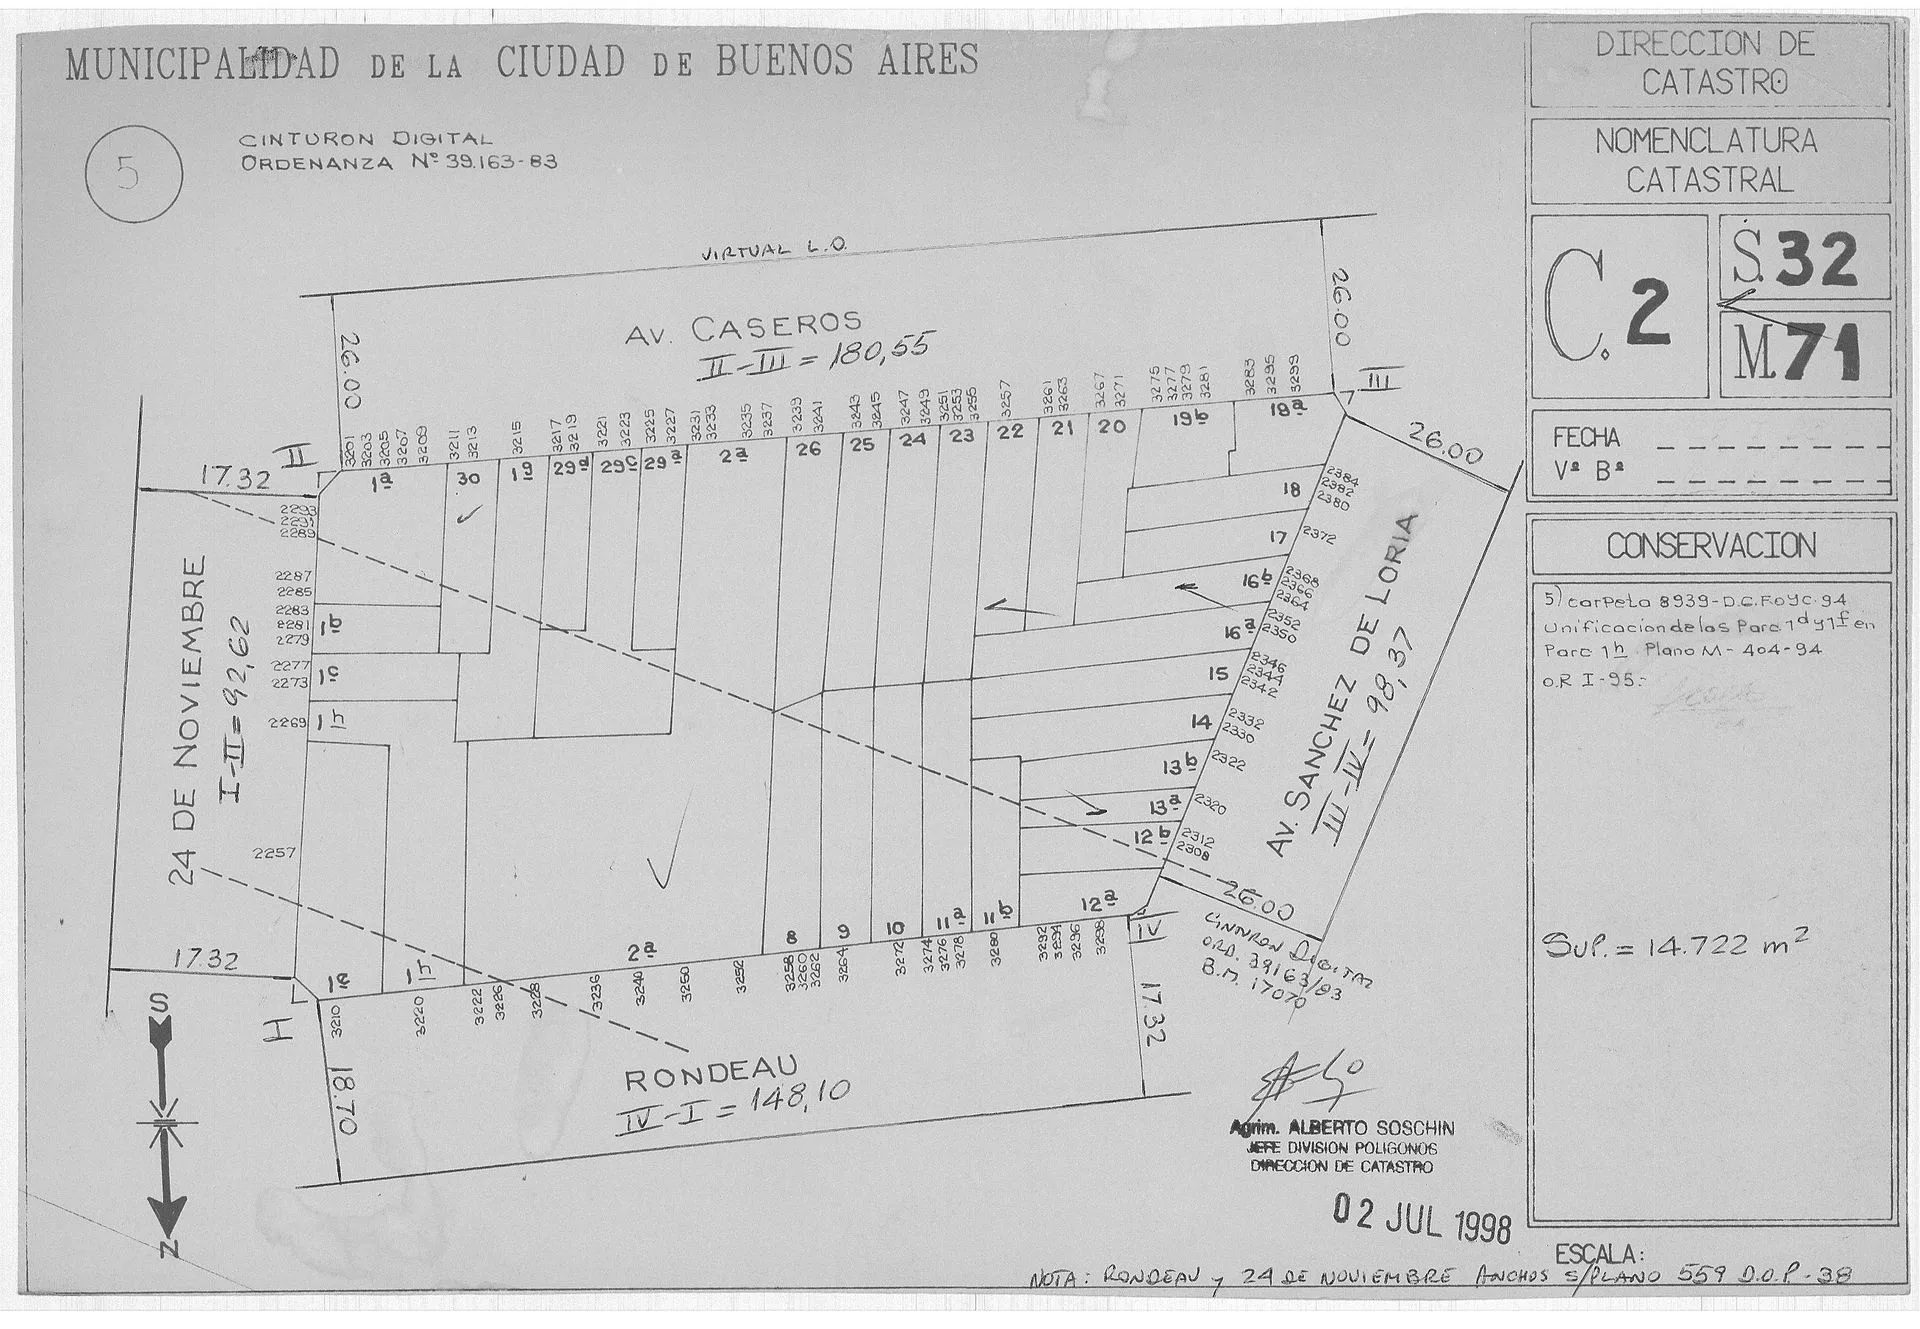 MUNICIPALIDAD DE LA CIUDAD DE BUENOS AIRES
5
CINTURON DIGITAL
ORDENANZA Nº 39.163-83
DIRECCION DE
CATASTRO
NOMENCLATURA
CATASTRAL
C. 2
S. 32
M. 71
FECHA
Vº Bº
CONSERVACION
5) carpeta 8939-D.C.FOyC-94
Unificacion de las Parc. 1d y 1f en
Parc 1h Plano M-404-94
O.R I-95.-
SUP. = 14.722 m²
VIRTUAL L.O.
26.00
26.00
AV. CASEROS
II-III = 180,55
II
III
3201
3203
3205
3207
3209
3211
3213
3215
3217
3219
3221
3223
3225
3227
3231
3233
3235
3237
3239
3241
3243
3245
3247
3249
3251
3253
3255
3257
3261
3263
3267
3271
3275
3277
3279
3281
3283
3295
3299
1a
30
1g
29d
29c
29a
2a
26
25
24
23
22
21
20
19b
19a
17.32
26.00
24 DE NOVIEMBRE
I-II = 92,62
2293
2291
2289
2287
2285
2283
2281
2279
2277
2273
2269
2257
1b
1c
1h
18
17
16b
16a
15
14
13b
13a
12b
2384
2382
2380
2372
2368
2366
2364
2352
2350
2346
2344
2342
2332
2330
2322
2320
2312
2308
AV. SANCHEZ DE LORIA
III-IV = 98,37
26.00
CINTURON DIGITAL
ORD. 39163/83
B.M. 17070
17.32
1e
1h
2a
8
9
10
11a
11b
12a
3210
3220
3222
3226
3228
3236
3240
3250
3252
3258
3260
3262
3264
3272
3274
3276
3278
3280
3292
3294
3296
3298
IV
H
18.70
17.32
RONDEAU
IV-I = 148,10
S
N
Agrim. ALBERTO SOSCHIN
JEFE DIVISION POLIGONOS
DIRECCION DE CATASTRO
02 JUL 1998
ESCALA:
NOTA: RONDEAU y 24 DE NOVIEMBRE ANCHOS S/PLANO 559 D.O.P-38